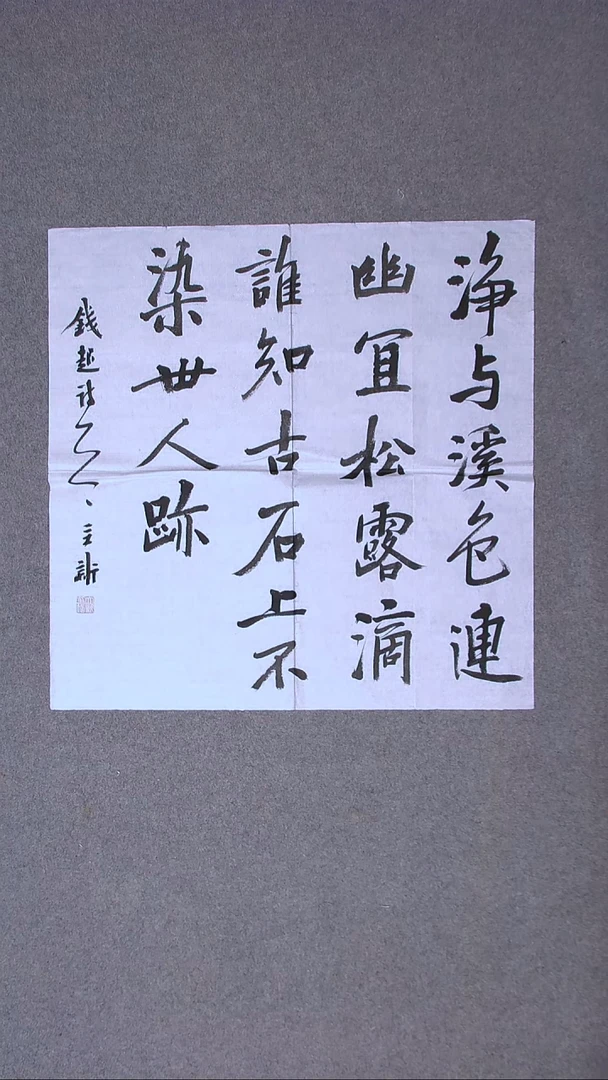 净与溪色連
幽宜松露滴
誰知古石上不
染世人跡
錢起诗